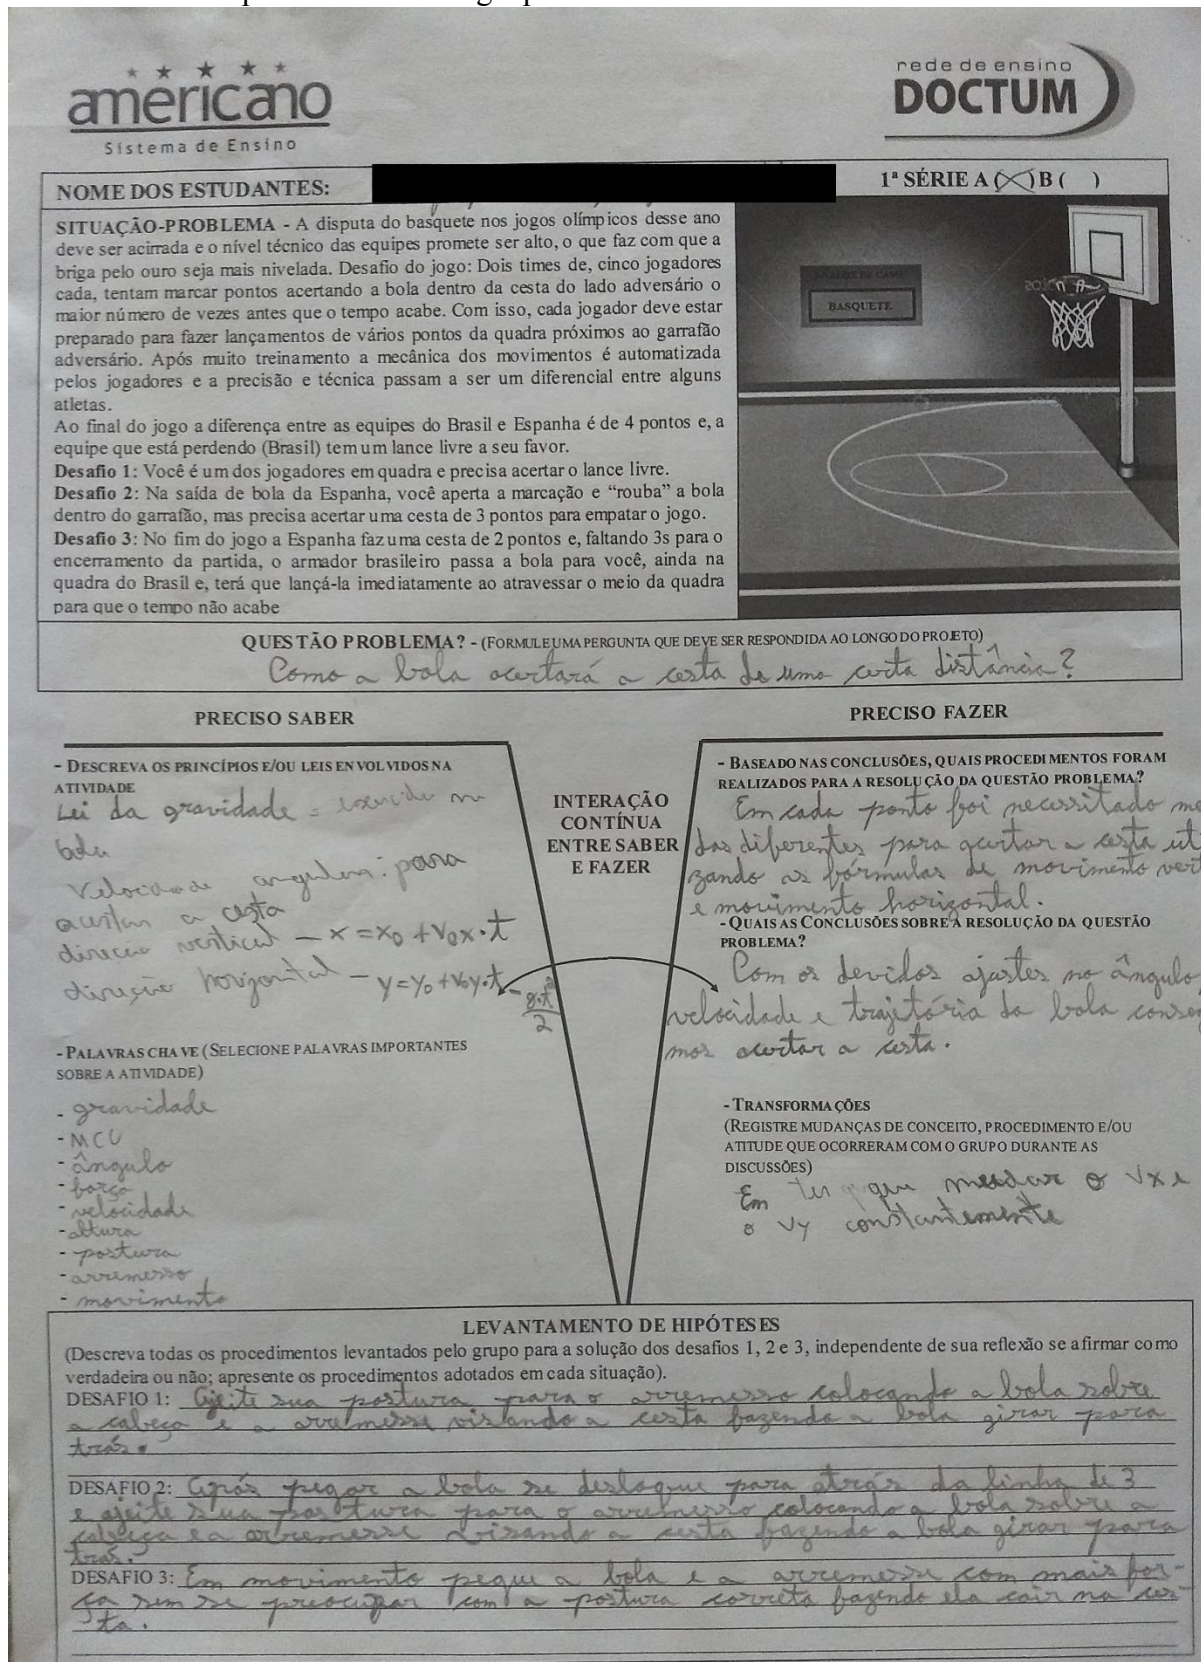 americano
Sistema de Ensino
rede de ensino
DOCTUM
NOME DOS ESTUDANTES:
1ª SÉRIE A (X) B ( )
SITUAÇÃO-PROBLEMA - A disputa do basquete nos jogos olímpicos desse ano
deve ser acirrada e o nível técnico das equipes promete ser alto, o que faz com que a
briga pelo ouro seja mais nivelada. Desafio do jogo: Dois times de, cinco jogadores
cada, tentam marcar pontos acertando a bola dentro da cesta do lado adversário o
maior número de vezes antes que o tempo acabe. Com isso, cada jogador deve estar
preparado para fazer lançamentos de vários pontos da quadra próximos ao garrafão
adversário. Após muito treinamento a mecânica dos movimentos é automatizada
pelos jogadores e a precisão e técnica passam a ser um diferencial entre alguns
atletas.
Ao final do jogo a diferença entre as equipes do Brasil e Espanha é de 4 pontos e, a
equipe que está perdendo (Brasil) tem um lance livre a seu favor.
Desafio 1: Você é um dos jogadores em quadra e precisa acertar o lance livre.
Desafio 2: Na saída de bola da Espanha, você aperta a marcação e “rouba” a bola
dentro do garrafão, mas precisa acertar uma cesta de 3 pontos para empatar o jogo.
Desafio 3: No fim do jogo a Espanha faz uma cesta de 2 pontos e, faltando 3s para o
encerramento da partida, o armador brasileiro passa a bola para você, ainda na
quadra do Brasil e, terá que lançá-la imediatamente ao atravessar o meio da quadra
para que o tempo não acabe
BASQUETE
QUESTÃO PROBLEMA? - (FORMULE UMA PERGUNTA QUE DEVE SER RESPONDIDA AO LONGO DO PROJETO)
Como a bola acertará a cesta de uma certa distância?
PRECISO SABER
- DESCREVA OS PRINCÍPIOS E/OU LEIS ENVOLVIDOS NA
ATIVIDADE
Lei da gravidade = exercida na
bola
Velocidade angular: para
acertar a cesta
direção vertical - x = x₀ + v₀x·t
direção horizontal - y = y₀ + v₀y·t - g·t²/2
- PALAVRAS CHAVE (SELECIONE PALAVRAS IMPORTANTES
SOBRE A ATIVIDADE)
- gravidade
- MCU
- ângulo
- força
- velocidade
- altura
- postura
- arremesso
- movimento
INTERAÇÃO
CONTÍNUA
ENTRE SABER
E FAZER
PRECISO FAZER
- BASEADO NAS CONCLUSÕES, QUAIS PROCEDIMENTOS FORAM
REALIZADOS PARA A RESOLUÇÃO DA QUESTÃO PROBLEMA?
Em cada ponto foi necessitado me
das diferentes para acertar a cesta uti
zando as fórmulas de movimento vert
e movimento horizontal.
- QUAIS AS CONCLUSÕES SOBRE A RESOLUÇÃO DA QUESTÃO
PROBLEMA?
Com os devidos ajustes no ângulo,
velocidade e trajetória da bola conse
mos acertar a cesta.
- TRANSFORMAÇÕES
(REGISTRE MUDANÇAS DE CONCEITO, PROCEDIMENTO E/OU
ATITUDE QUE OCORRERAM COM O GRUPO DURANTE AS
DISCUSSÕES)
Em ter que mudar o Vx e
o Vy constantemente
LEVANTAMENTO DE HIPÓTESES
(Descreva todas os procedimentos levantados pelo grupo para a solução dos desafios 1, 2 e 3, independente de sua reflexão se afirmar como
verdadeira ou não; apresente os procedimentos adotados em cada situação).
DESAFIO 1: Ajeite sua postura para o arremesso colocando a bola sobre
a cabeça e a arremesse visando a cesta fazendo a bola girar para
trás.
DESAFIO 2: Após pegar a bola se desloque para atrás da linha de 3
e ajeite sua postura para o arremesso colocando a bola sobre a
cabeça e a arremesse visando a cesta fazendo a bola girar para
trás.
DESAFIO 3: Em movimento pegue a bola e a arremesse com mais for-
ça sem se preocupar com a postura correta fazendo ela cair na ces-
ta.